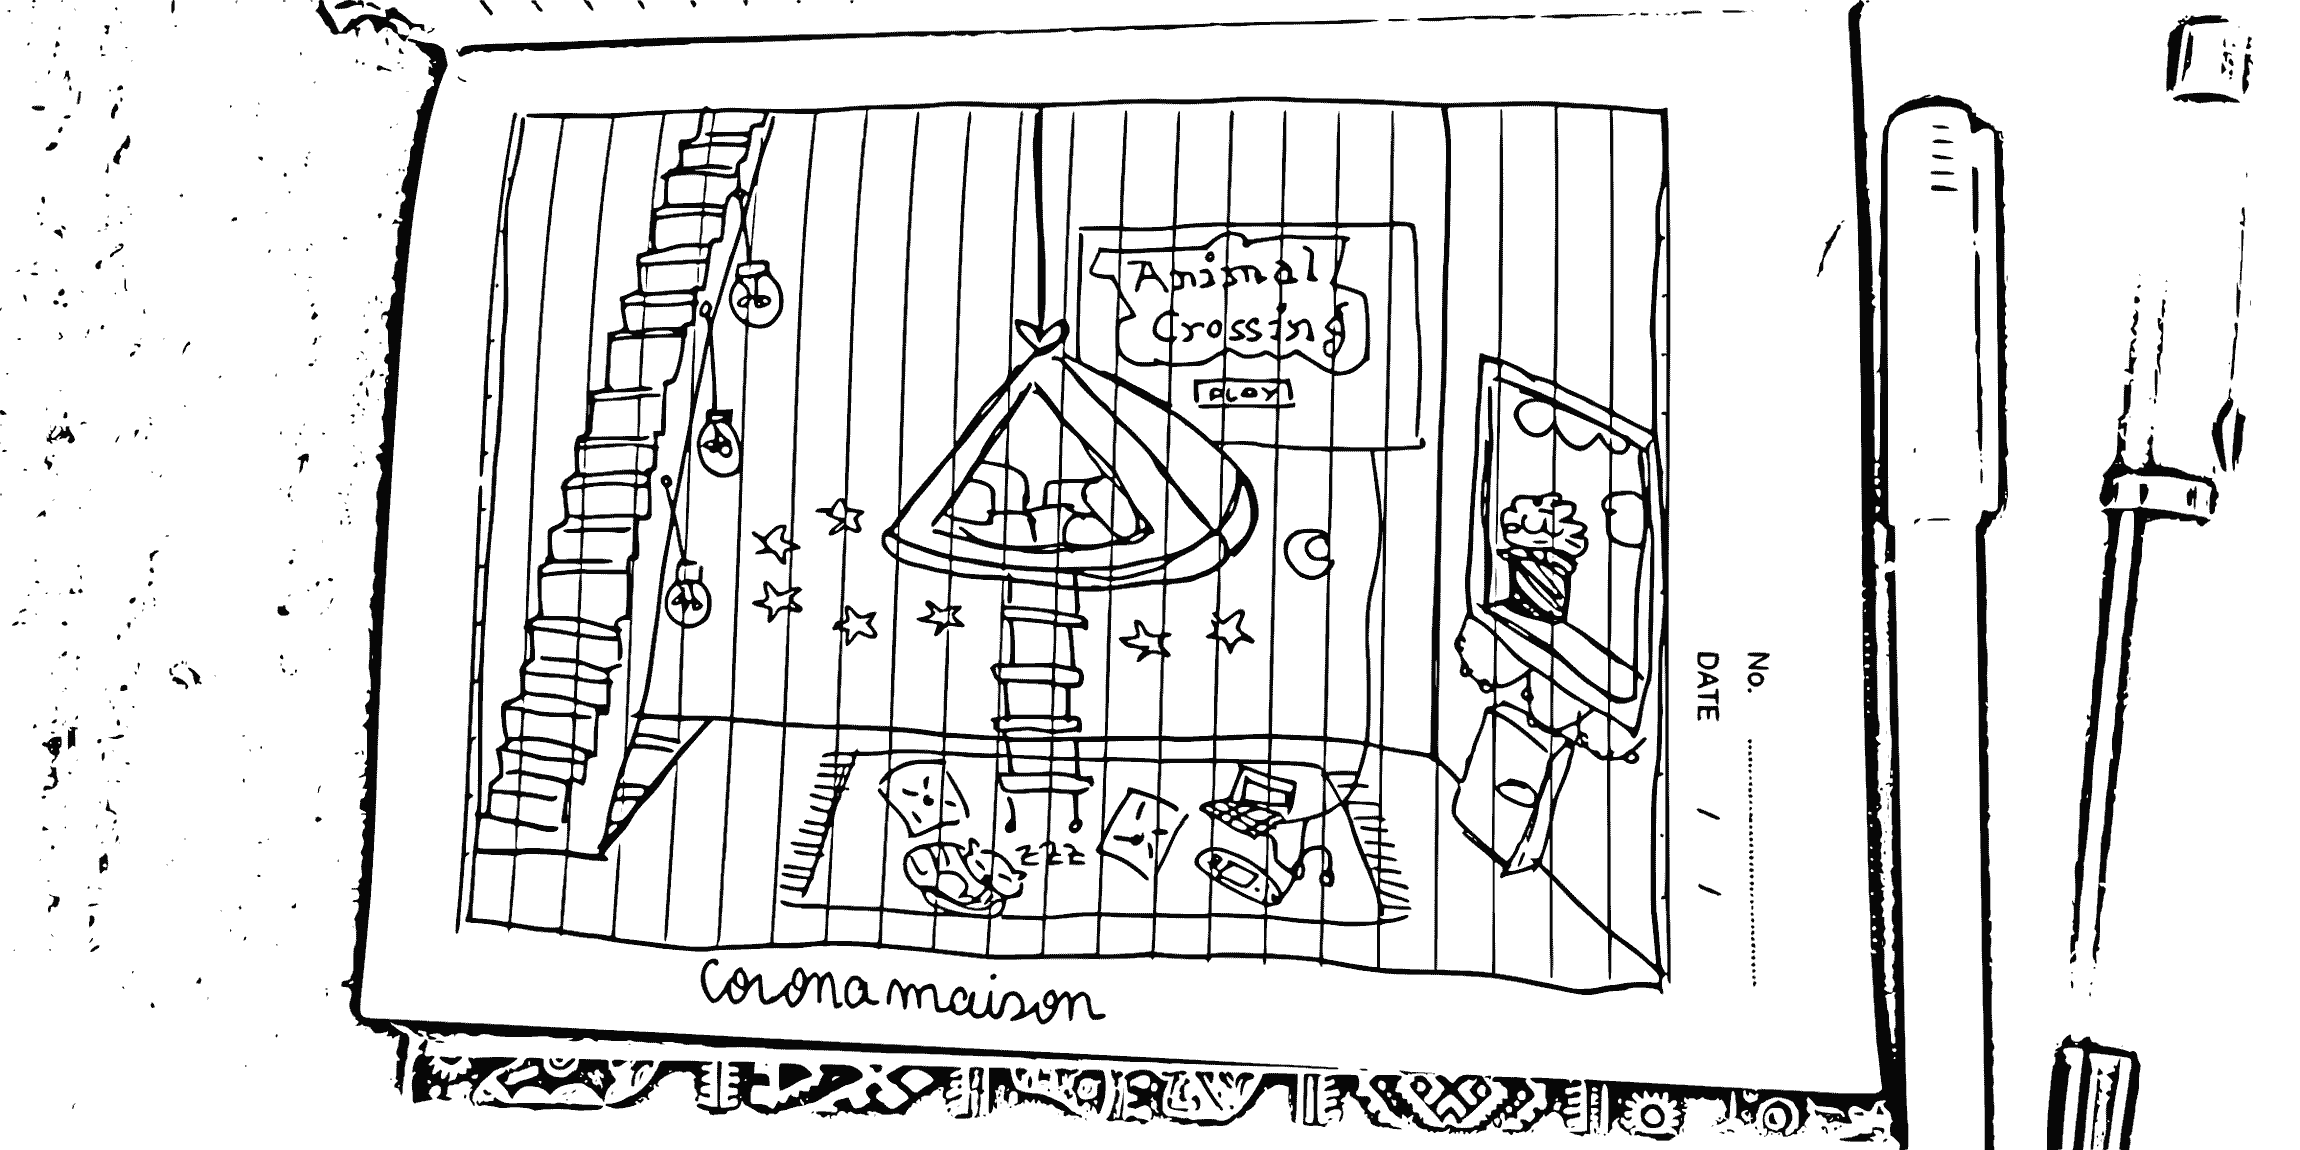 Animal
Crossing
PLAY
zzz
No.
DATE / /
Corona maison